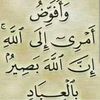 وَأُفَوِّضُ
أَمْرِي إِلَى اللَّهِ ۚ
إِنَّ اللَّهَ بَصِيرٌ
بِالْعِبَادِ